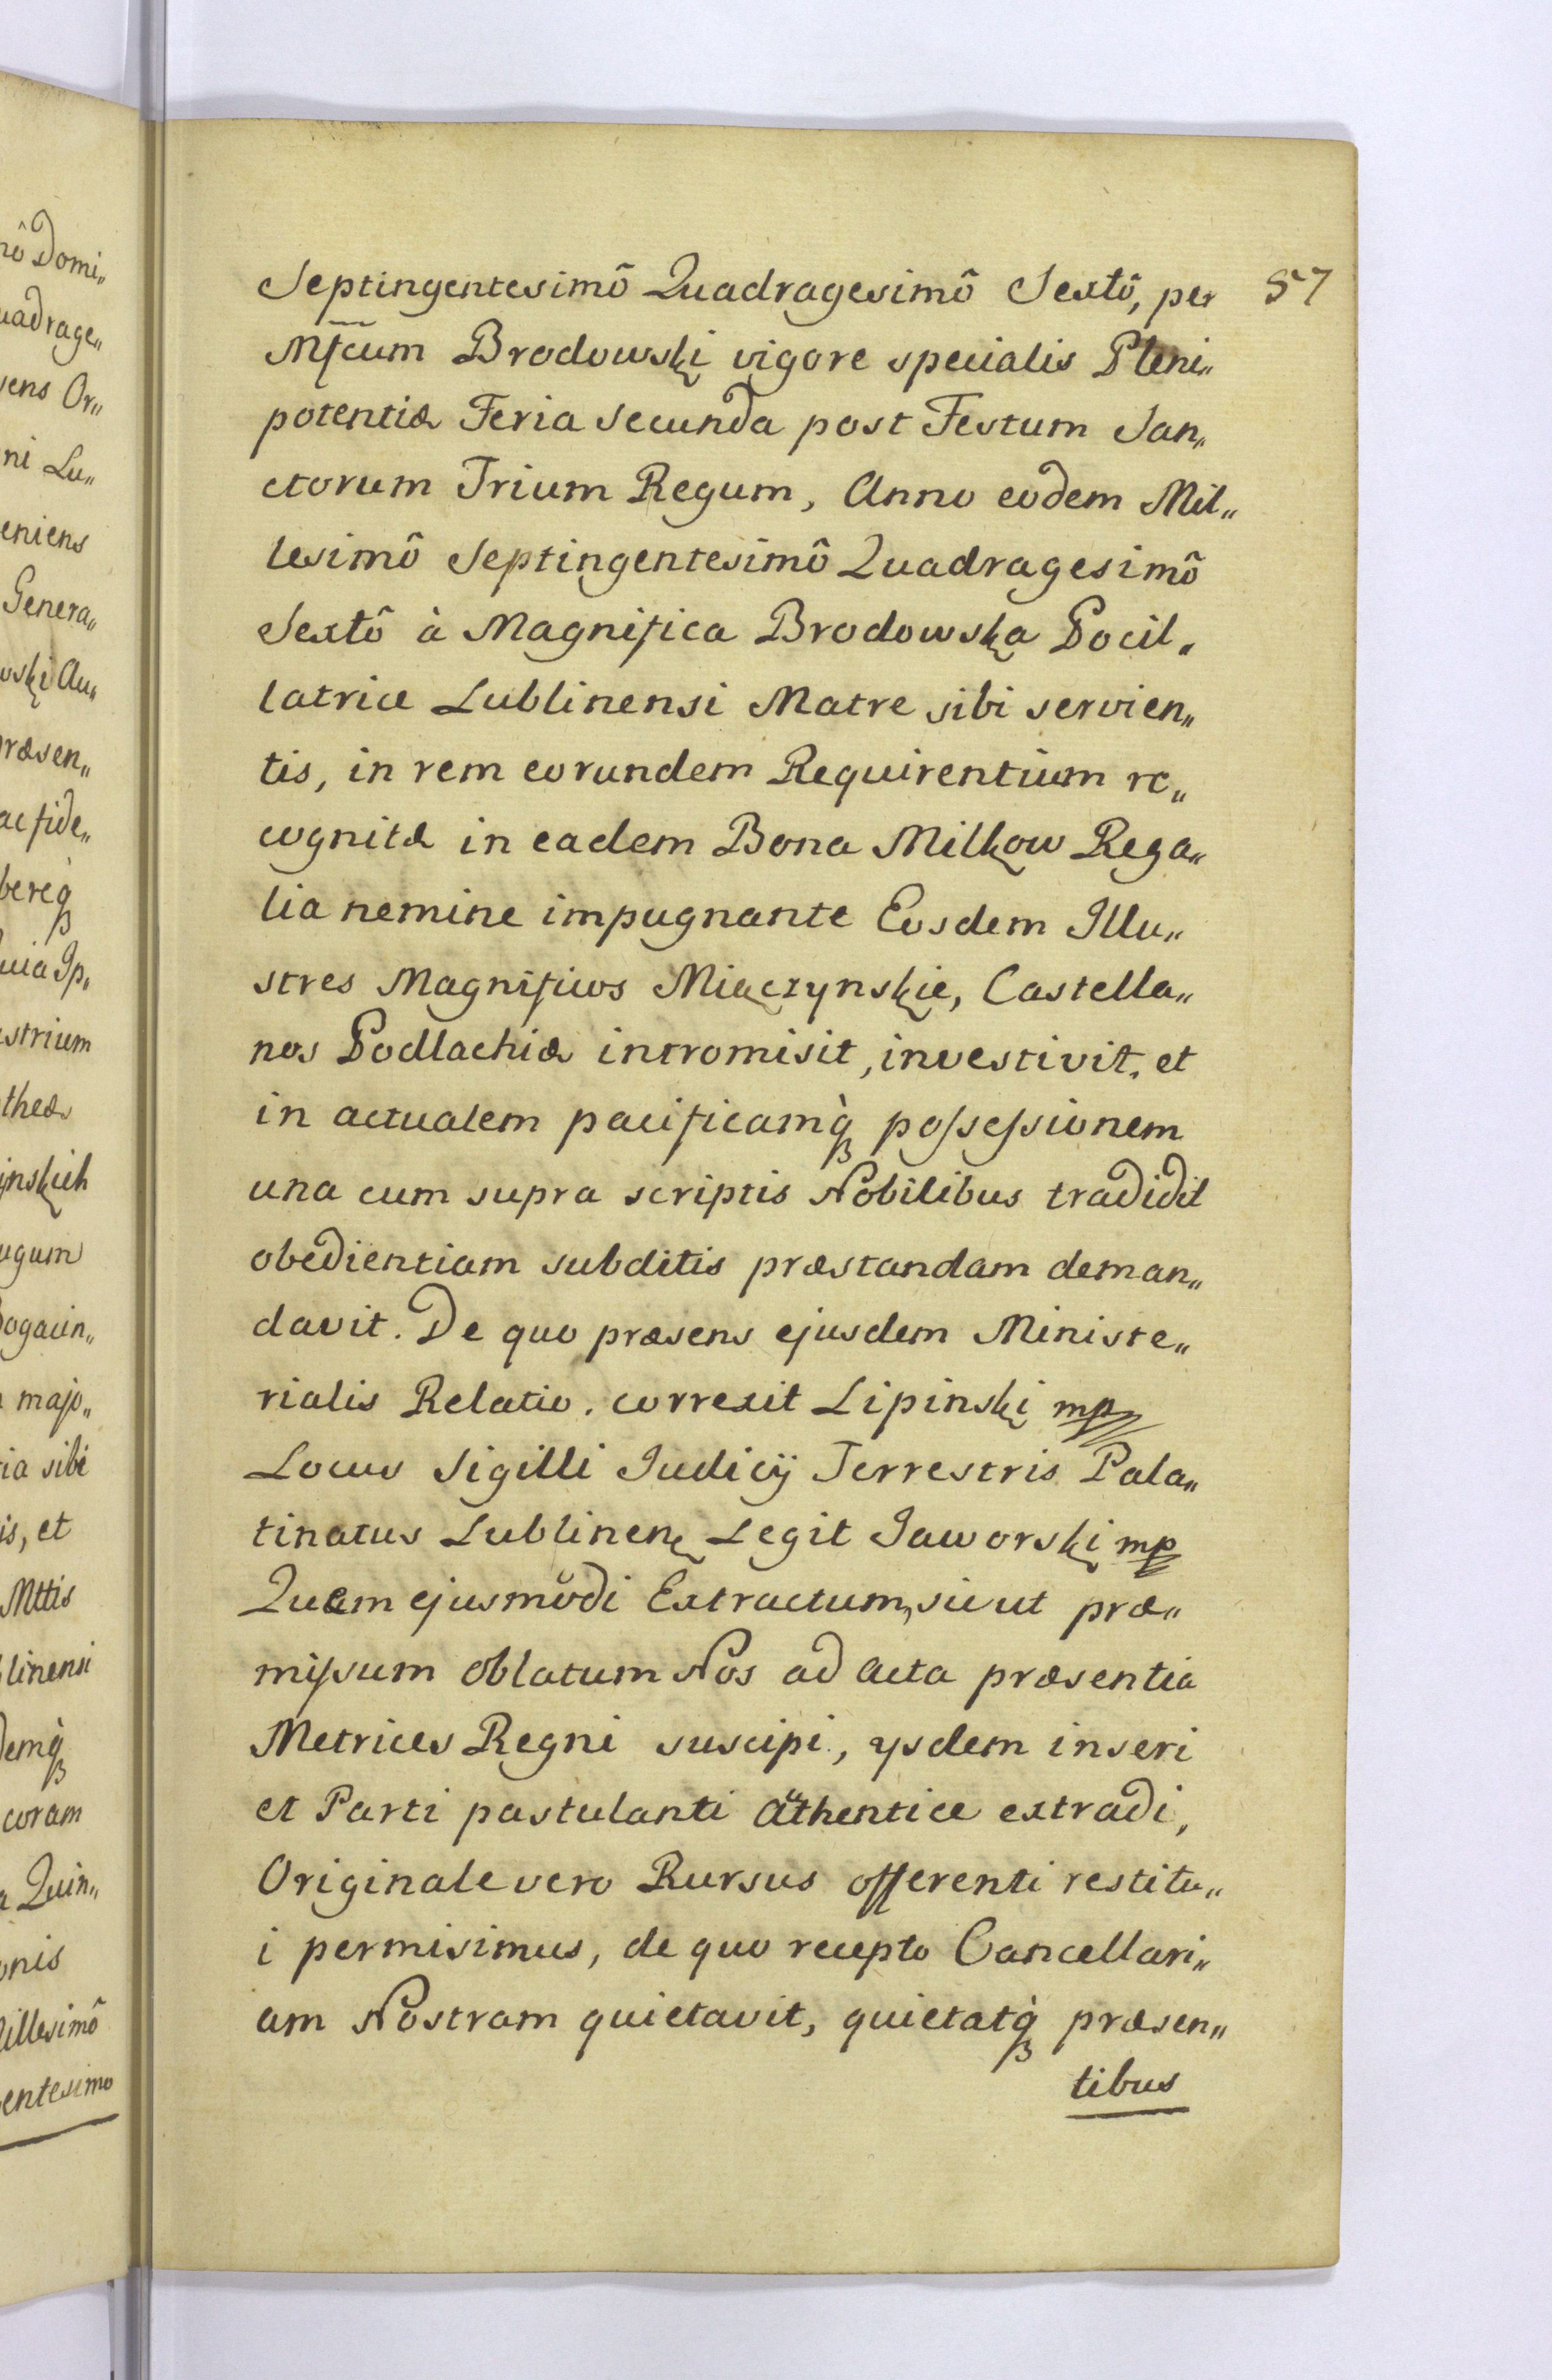 57
Septingentesimô Quadragesimô Sextô, per
Mfcum Brodowski vigore specialis Pleni„
potentiæ Feria secunda post Festum San„
ctorum Trium Regum, Anno eodem Mil„
lesimô Septingentesimô Quadragesimô
Sextô à Magnifica Brodowska Pocil„
latrice Lublinensi Matre sibi servien„
tis, in rem eorundem Requirentium re„
cognitæ in eadem Bona Milkow Rega„
lia nemine impugnante Eosdem Illu„
stres Magnificos Miączynskie, Castella„
nos Podlachiæ intromisit, investivit, et
in actualem pacificamq̀ꝫ possessionem
una cum supra scriptis Nobilibus tradidit
obedientiam subditis præstandam deman„
davit. De quo præsens ejusdem Ministe„
rialis Relatio. correxit Lipinski mp
Locus Sigilli Judicij Terrestris Pala„
tinatus Lublinen Legit Jaworski mp
Quem ejusmodi Extractum, sicut præ„
missum oblatum Nos ad acta præsentia
Metrices Regni suscipi, ysdem inseri
et Parti postulanti authentice extradi,
Originale vero Rursus offerenti restitu„
i permisimus, de quo recepto Cancellari„
am Nostram quietavit, quietatq̀ꝫ præsen„
tibus